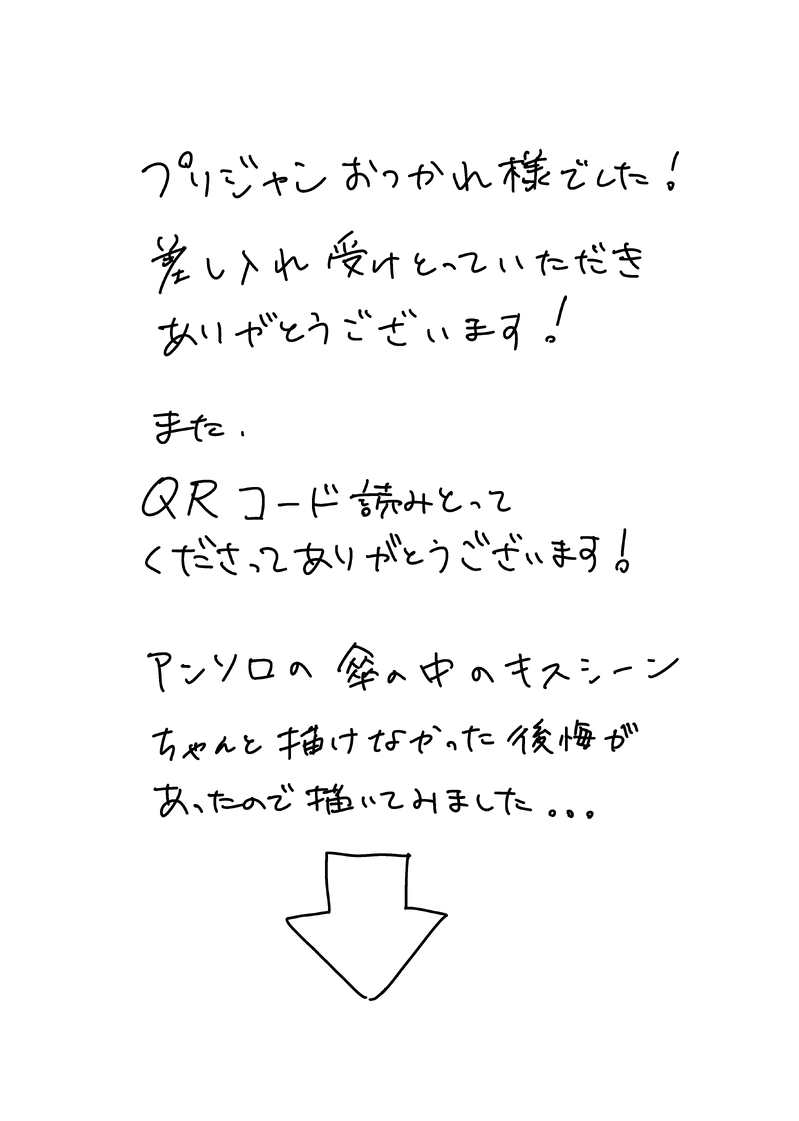 プリジャンおつかれ様でした!
差し入れ受けとっていただき
ありがとうございます!
また.
QRコード読みとって
くださってありがとうございます!
アンソロの傘の中のキスシーン
ちゃんと描けなかった後悔が
あったので描いてみました...